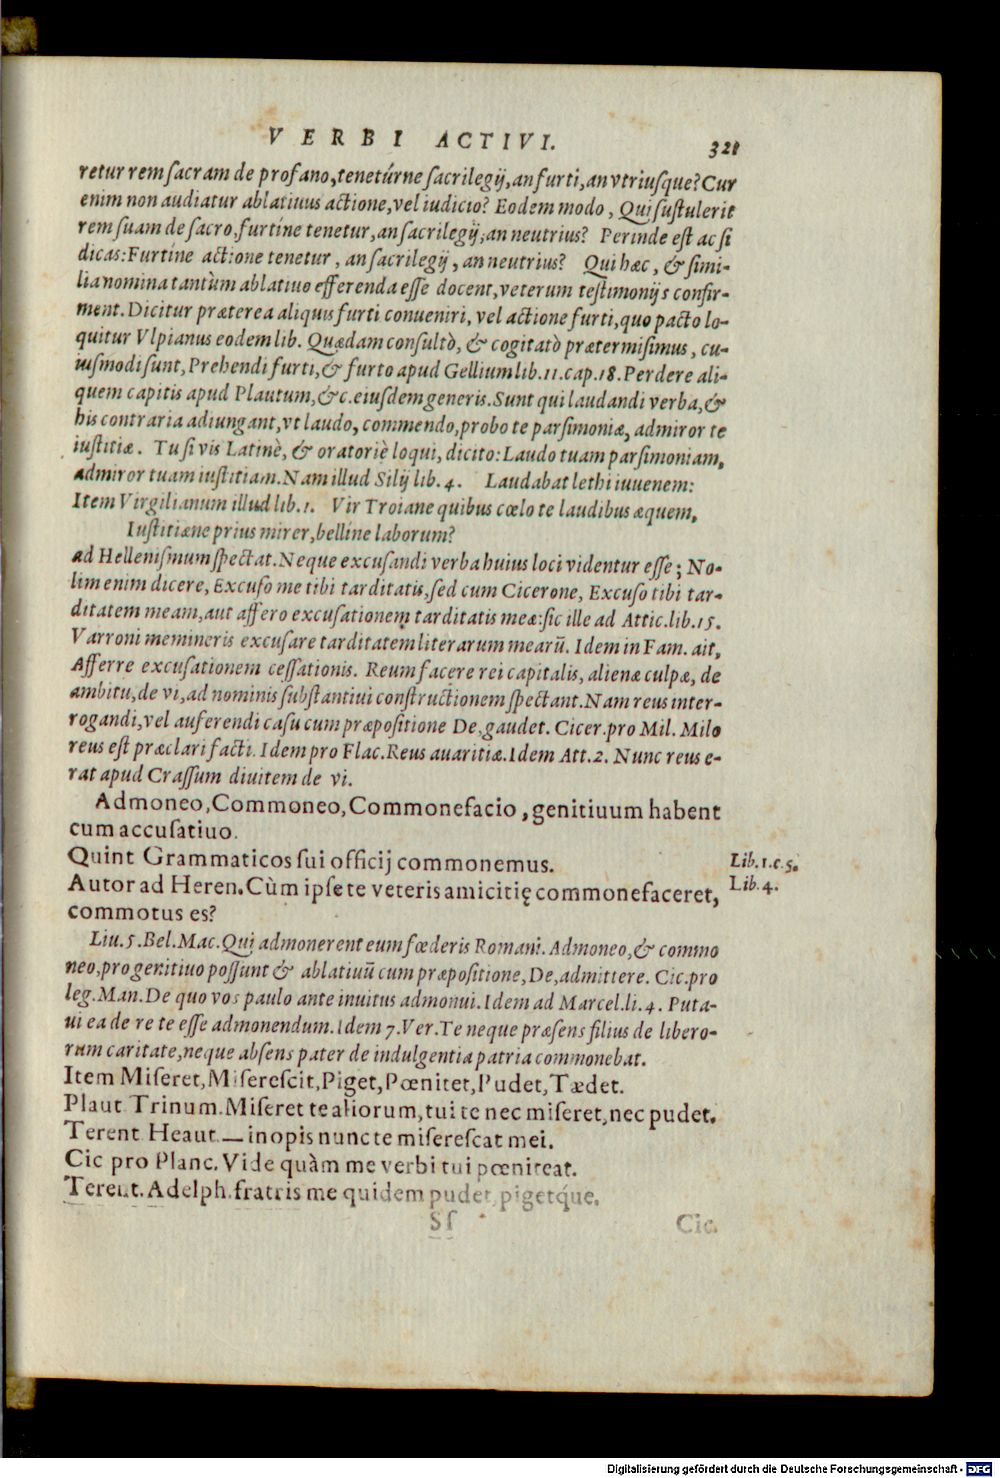 VERBI ACTIVI. 321
retur rem ſacram de profano, tenetúrne ſacrilegij, an furti, an vtriuſque? Cur
enim non audiatur ablatiuus actione, vel iudicio? Eodem modo, Qui ſuſtulerit
rem ſuam de ſacro, furtíne tenetur, an ſacrilegij, an neutrius? Perinde eſt ac ſi
dicas: Furtíne actione tenetur, an ſacrilegij, an neutrius? Qui hæc, & ſimi-
lia nomina tantùm ablatiuo efferenda eſſe docent, veterum teſtimonijs confir-
ment. Dicitur præterea aliquis furti conueniri, vel actione furti, quo pacto lo-
quitur Vlpianus eodem lib. Quædam conſultò, & cogitatò prætermiſimus, cu-
iuſmodi ſunt, Prehendi furti, & furto apud Gellium lib. 11. cap. 18. Perdere ali-
quem capitis apud Plautum, &c. eiuſdem generis. Sunt qui laudandi verba, &
his contraria adiungant, vt laudo, commendo, probo te parſimoniæ, admiror te
iuſtitiæ. Tu ſi vis Latinè, & oratoriè loqui, dicito: Laudo tuam parſimoniam,
admiror tuam iuſtitiam. Nam illud Silij lib. 4. Laudabat lethi iuuenem:
Item Virgilianum illud lib. 1. Vir Troiane quibus cœlo te laudibus æquem,
Iuſtitiæne prius mirer, belline laborum?
ad Helleniſmum ſpectat. Neque excuſandi verba huius loci videntur eſſe; No-
lim enim dicere, Excuſo me tibi tarditatis, ſed cum Cicerone, Excuſo tibi tar-
ditatem meam, aut affero excuſationem tarditatis meæ: ſic ille ad Attic. lib. 15.
Varroni memineris excuſare tarditatem literarum mearū. Idem in Fam. ait,
Afferre excuſationem ceſſationis. Reum facere rei capitalis, alienæ culpæ, de
ambitu, de vi, ad nominis ſubſtantiui conſtructionem ſpectant. Nam reus inter-
rogandi, vel auferendi caſu cum præpoſitione De, gaudet. Cicer. pro Mil. Milo
reus eſt præclari facti. Idem pro Flac. Reus auaritiæ. Idem Att. 2. Nunc reus e-
rat apud Craſſum diuitem de vi.
Admoneo, Commoneo, Commonefacio, genitiuum habent
cum accuſatiuo.
Quint Grammaticos ſui officij commonemus. Lib. 1. c. 5.
Autor ad Heren. Cùm ipſe te veteris amicitię commonefaceret, Lib. 4.
commotus es?
Liu. 5. Bel. Mac. Qui admonerent eum fœderis Romani. Admoneo, & commo
neo, pro genitiuo poſſunt & ablatiuū cum præpoſitione, De, admittere. Cic. pro
leg. Man. De quo vos paulo ante inuitus admonui. Idem ad Marcel. li. 4. Puta-
ui ea de re te eſſe admonendum. Idem 7. Ver. Te neque præſens filius de libero-
rum caritate, neque abſens pater de indulgentia patria commonebat.
Item Miſeret, Miſereſcit, Piget, Pœnitet, Pudet, Tædet.
Plaut Trinum. Miſeret te aliorum, tui te nec miſeret, nec pudet.
Terent Heaut. — inopis nunc te miſereſcat mei.
Cic pro Planc. Vide quàm me verbi tui pœniteat.
Terent. Adelph. fratris me quidem pudet, pigetq́ue.
Sſ Cic.
Digitalisierung gefördert durch die Deutsche Forschungsgemeinschaft - DFG